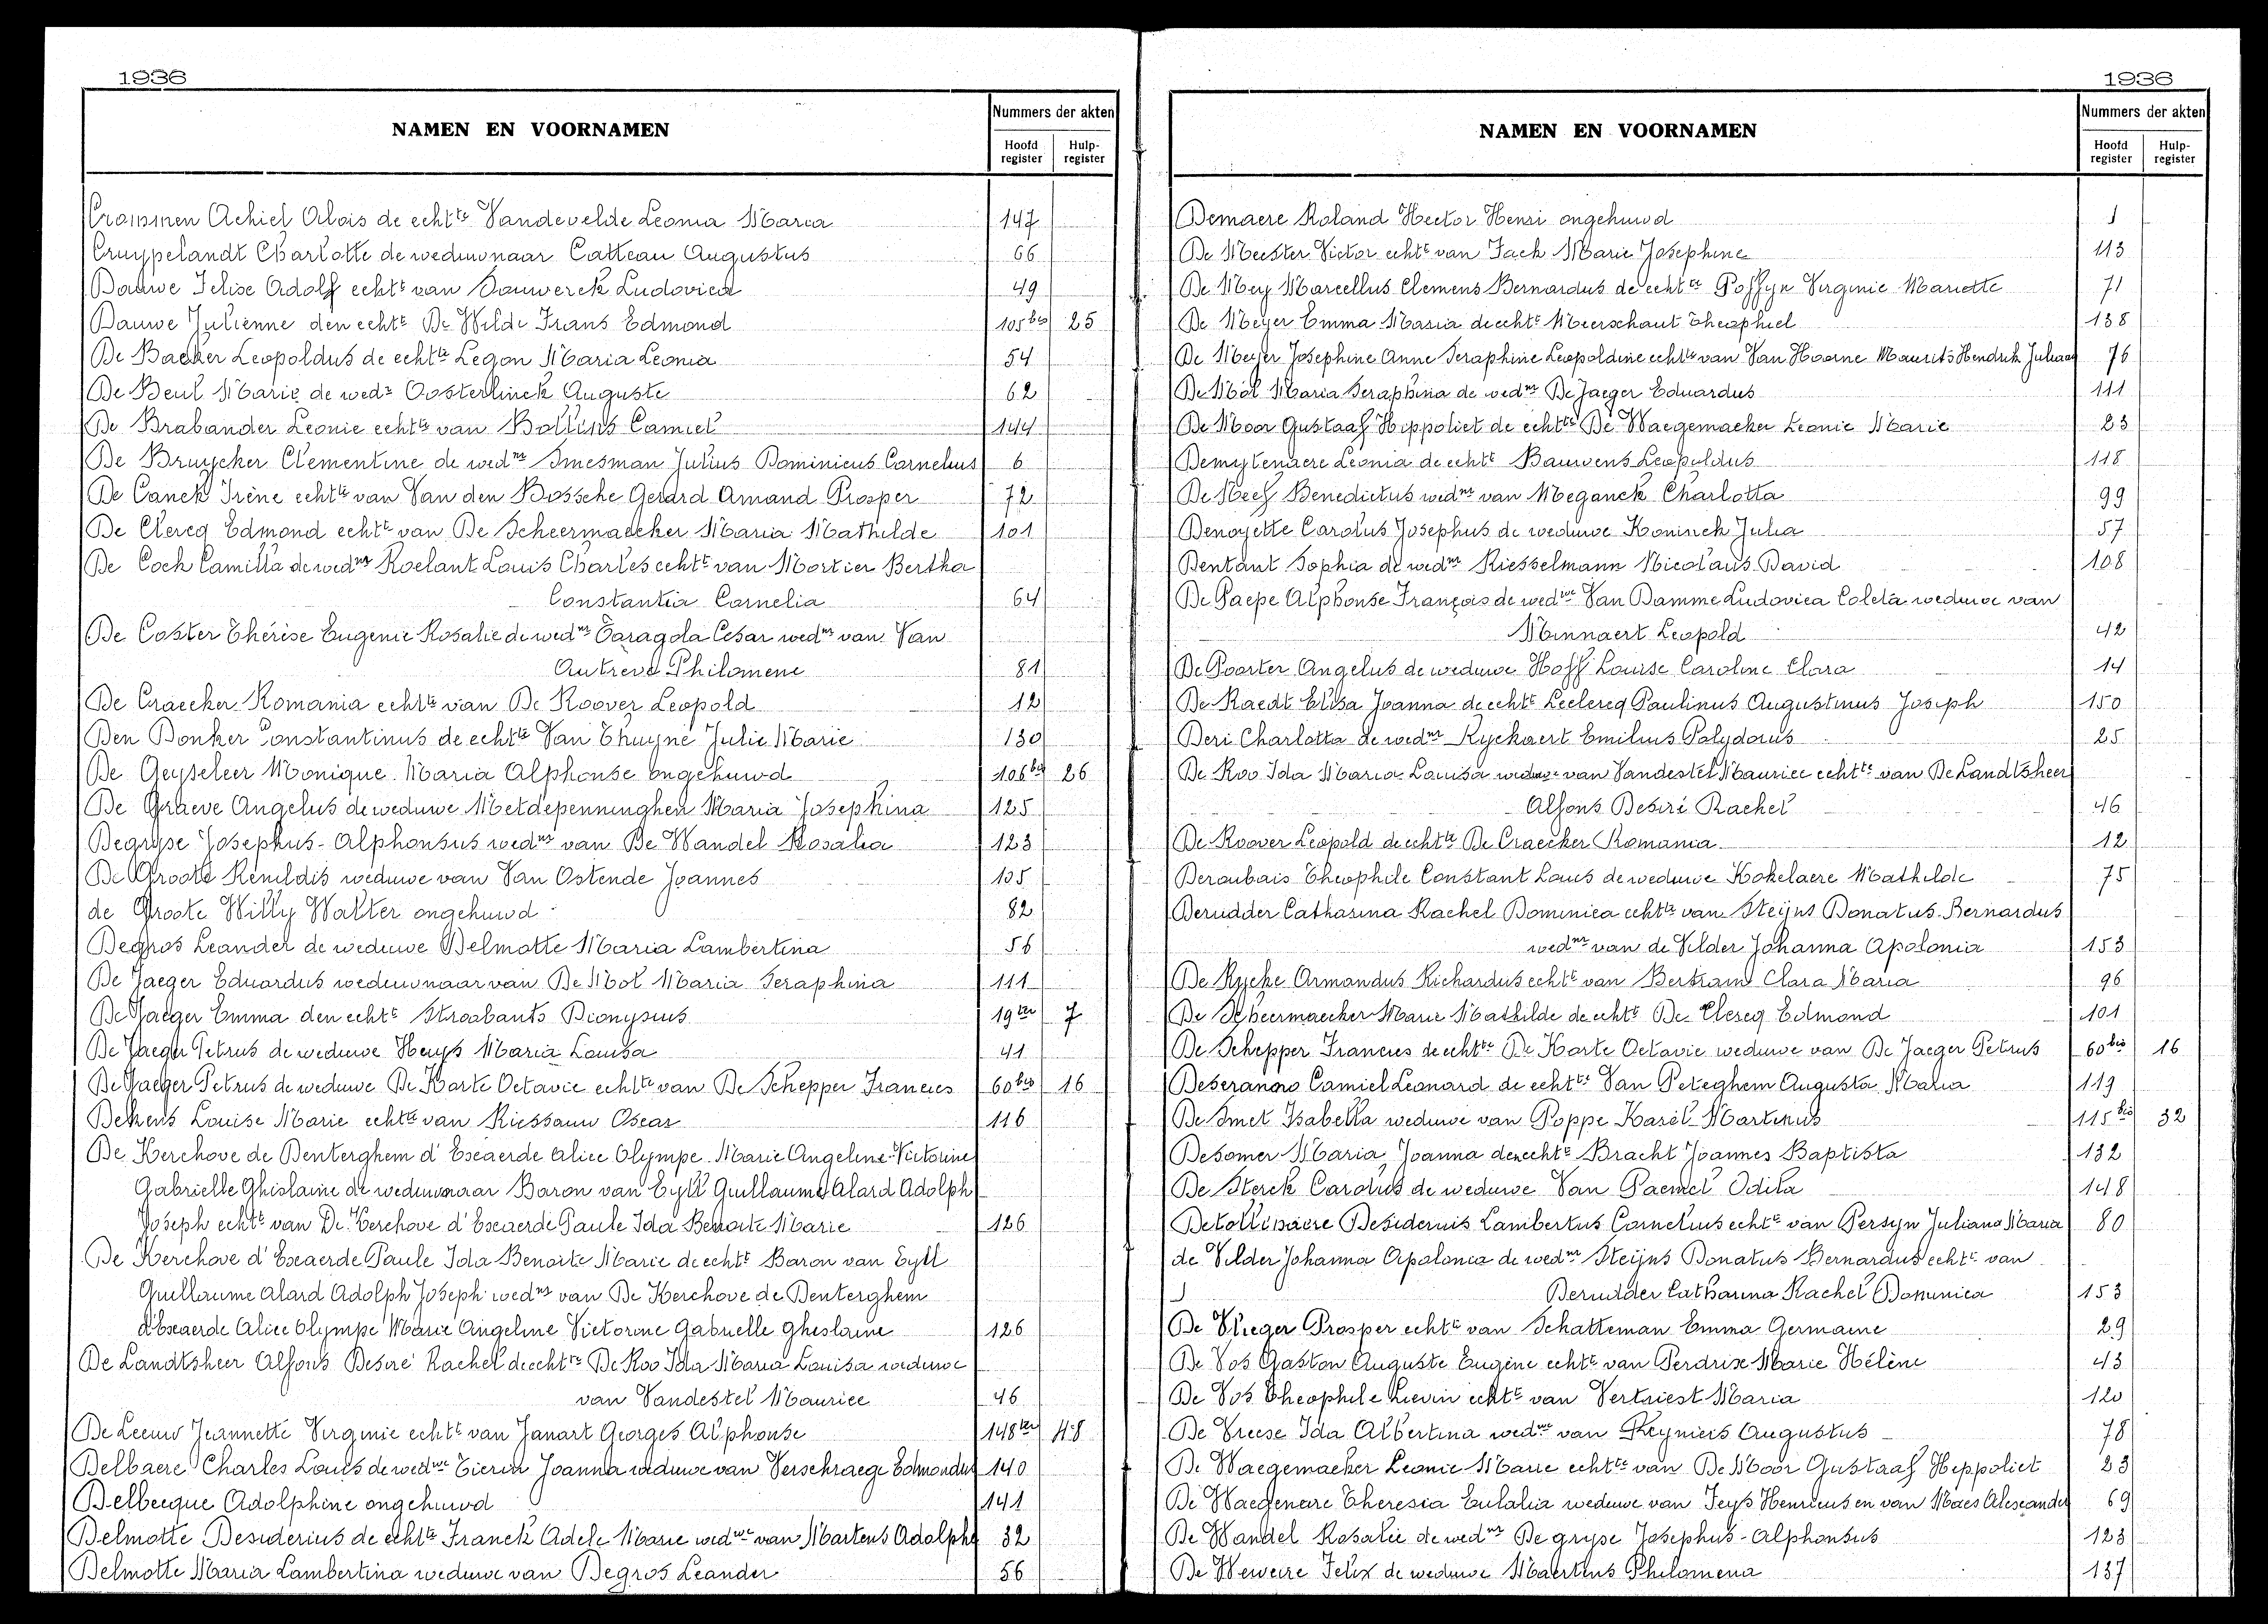 1936
NAMEN EN VOORNAMEN
Nummers der akten
Hoofd register
Hulp-register
Crommen Achiel Alois de echtte Vandevelde Leonia Maria 147
Cruypelandt Charlotte de weduwnaar Catteau Augustus 66
Dauwe Felix Adolf echtt van Sauwerck Ludovica 49
Dauwe Julienne den echtt De Wilde Frans Edmond 105bis 25
De Backer Leopoldus de echtte Legon Maria Leonia 54
De Beul Marie de wedr Oosterlinck Auguste 62
De Brabander Leonie echtte van Bollins Camiel 144
De Bruycker Clementine de wednr Imesman Julius Dominicus Cornelius 6
De Canck Irène echtte van Van den Bossche Gerard Amand Prosper 72
De Clercq Edmond echtt van De Scheermaecker Maria Mathilde 101
De Cock Camilla de wednr Roelant Louis Charles echtt van Mortier Bertha
Constantia Cornelia 64
De Coster Thérèse Eugenie Rosalie de wednr Taragola César wednr van Van
Autrève Philomene 81
De Craecker Romania echtte van De Roover Leopold 12
Den Donker Constantinus de echtte Van Thuyne Julie Marie 130
De Geyseleer Monique Maria Alphonse ongehuwd 106bis 26
De Graeve Angelus de weduwe Metdepenninghen Maria Josephina 125
Degryse Josephus-Alphonsus wednr van De Wandel Rosalia 123
De Groote Renildis weduwe van Van Ostende Joannes 105
de Groote Willy Walter ongehuwd 82
Degros Leander de weduwe Delmotte Maria Lambertina 56
De Jaeger Eduardus weduwnaar van De Mol Maria Seraphina 111
De Jaeger Emma den echtt Stroobants Dionysius 19ter 7
De Jaeger Petrus de weduwe Heuys Maria Louisa 41
De Jaeger Petrus de weduwe De Korte Octavie echtte van De Schepper Francies 60bis 16
Dekens Louise Marie echtte van Riessauw Oscar 116
De Kerchove de Denterghem d'Exaerde Alice Olympe Marie Angeline-Victorine
Gabrielle Ghislaine de weduwnaar Baron van Eyll Guillaume Alard Adolph
Joseph echtt van De Kerchove d'Exaerde Paule Ida Benoite Marie 126
De Kerchove d'Exaerde Paule Ida Benoite Marie de echtt Baron van Eyll
Guillaume Alard Adolph Joseph wednr van De Kerchove de Denterghem
d'Exaerde Alice Olympe Marie Angeline Victorine Gabrielle Ghislaine 126
De Landtsheer Alfons Desiré Rachel de echtte De Roo Ida Maria Louisa weduwe
van Vandestel Maurice 46
De Leeuw Jeannette Virginie echtt van Janart Georges Alphonse 148ter 48
Delbaere Charles Louis de wedwe Tierin Joanna weduwe van Verschraege Edmondus 140
Delbecque Adolphine ongehuwd 141
Delmotte Desiderius de echtte Franck Adele Marie wedwe van Martens Adolphe 32
Delmotte Maria Lambertina weduwe van Degros Leander 56
1936
NAMEN EN VOORNAMEN
Nummers der akten
Hoofd register
Hulp-register
Demaere Roland Hector Henri ongehuwd 1
De Meester Victor echtt van Fack Marie Josephine 113
De Mey Marcellus Clemens Bernardus de echtte Poffyn Virginie Mariette 71
De Meyer Emma Maria de echtt Meerschaut Theophiel 138
De Meyer Josephine Anne Seraphine Leopoldine echtte van Van Hoorne Maurits Hendrik Juliaan 76
De Mol Maria Seraphina de wednr De Jaeger Eduardus 111
De Moor Gustaaf Hippoliet de echtte De Waegemaeker Leonie Marie 23
Demytenaere Leonia de echtt Bauwens Leopoldus 118
De Neef Benedictus wednr van Meganck Charlotta 99
Denoyette Carolus Josephus de weduwe Koninck Julia 57
Dentant Sophia de wednr Riesselmann Nicolaus David 108
De Paepe Alphonse François de wedwe Van Damme Ludovica Coleta weduwe van
Minnaert Leopold 42
De Poorter Angelus de weduwe Hoff Louise Caroline Clara 14
De Raedt Elisa Joanna de echtt Leclercq Paulinus Augustinus Joseph 150
Deri Charlotta de wednr Ryckaert Emilius Polydorus 25
De Roo Ida Maria Louisa weduwe van Vandestel Maurice echtte van De Landtsheer
Alfons Desiré Rachel 46
De Roover Leopold de echtte De Craecker Romania 12
Deroubais Theophile Constant Louis de weduwe Kokelaere Mathilde 75
Derudder Catharina Rachel Dominica echtte van Steijns Donatus Bernardus
wednr van de Vilder Johanna Apolonia 153
De Rycke Armandus Richardus echtt van Bertram Clara Maria 96
De Scheermaecker Marie Mathilde de echtt De Clercq Edmond 101
De Schepper Francies de echtte De Korte Octavie weduwe van De Jaeger Petrus 60bis 16
Deseranno Camiel Leonard de echtte Van Peteghem Augusta Maria 119
De Smet Isabella weduwe van Poppe Karel Martinus 115bis 32
Desomer Maria Joanna den echtt Bracht Joannes Baptista 132
De Sterck Carolus de weduwe Van Paemel Odila 148
Detollenaere Desiderius Lambertus Cornelius echtt van Persyn Juliana Maria 80
de Vilder Johanna Apolonia de wednr Steijns Donatus Bernardus echtt van
Derudder Catharina Rachel Dominica 153
De Vlieger Prosper echtt van Schatteman Emma Germaine 29
De Vos Gaston Auguste Eugène echtt van Perdrix Marie Hélène 43
De Vos Theophile Lievin echtt van Vertriest Maria 120
De Vreese Ida Albertina wedwe van Reyniers Augustus 78
De Waegemaeker Leonie Marie echtte van De Moor Gustaaf Hippoliet 23
De Waegenere Theresia Eulalia weduwe van Feys Henricus en van Maes Alexander 69
De Wandel Rosalie de wednr Degryse Josephus-Alphonsus 123
De Weweire Felix de weduwe Maertens Philomena 137